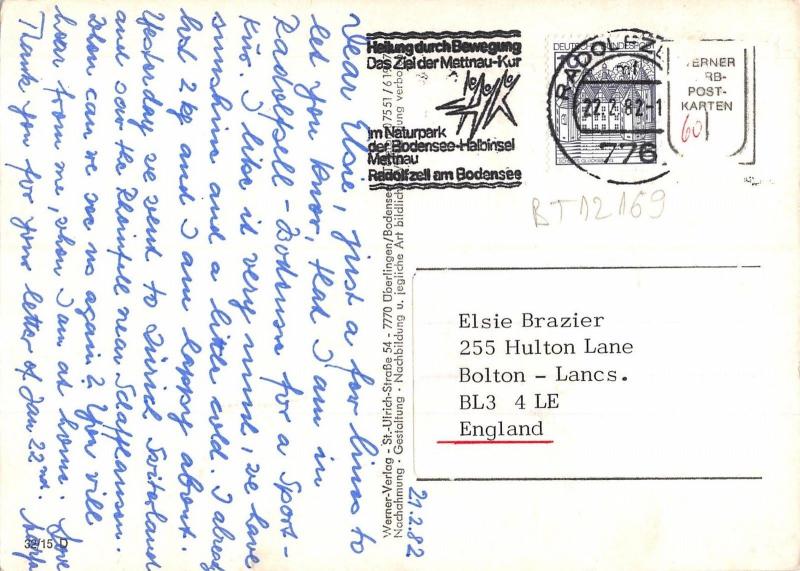 Dear Elsie, just a few lines to
let you know, that I am in
Radolfzell - Bodensee for a Sport-
Kur. I like it very much, we have
sunshine and a little cold. I already
lost 2 kg and I am happy about.
Yesterday we went to Zürich Switerland
and saw to Rheinfell near Schaffhausen.
When can we see us again? You will
hear from me, when I am at home. Love
Thank you for your letter of Jan 22nd.
21.2.82
32/15 D
Werner-Verlag - St.-Ulrich-Straße 54 - 7770 Überlingen/Bodensee
Nachahmung - Gestaltung - Nachbildung u. jegliche Art bildlicher
Heilung durch Bewegung
Das Ziel der Mettnau-Kur
im Naturpark
der Bodensee-Halbinsel
Mettnau
Radolfzell am Bodensee
DEUTSCHE BUNDESPOST
RADOLFZELL
22.2.82-1
776
WERNER
FARB-
POST-
KARTEN
60
BT12169
Elsie Brazier
255 Hulton Lane
Bolton - Lancs.
BL3 4 LE
England